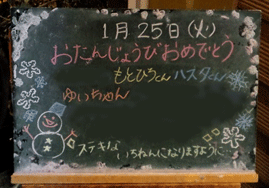 1月25日(火)
おたんじょうびおめでとう
もとひろくん ハスタくん
ゆいちゃん
ステキな いちねんになりますように